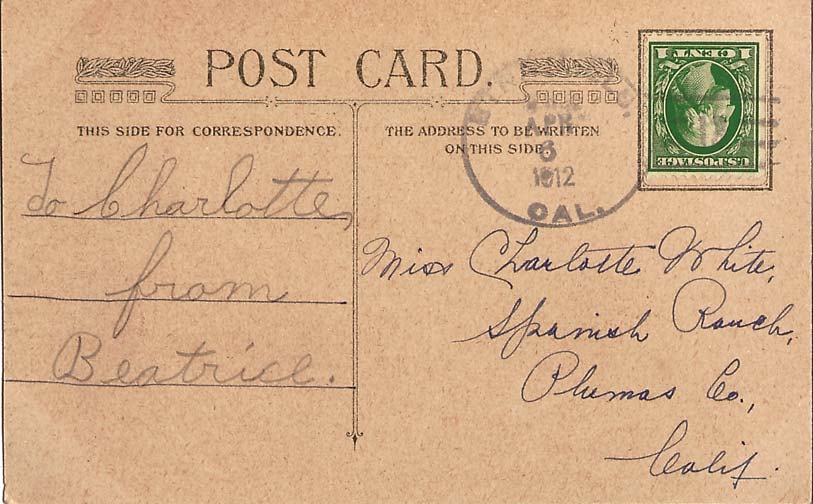 POST CARD.
THIS SIDE FOR CORRESPONDENCE.
To Charlotte,
from
Beatrice.
THE ADDRESS TO BE WRITTEN
ON THIS SIDE.
APR
6
1912
CAL.
U.S. POSTAGE
1 CENT 1
Miss Charlotte White,
Spanish Ranch,
Plumas Co.,
Calif.